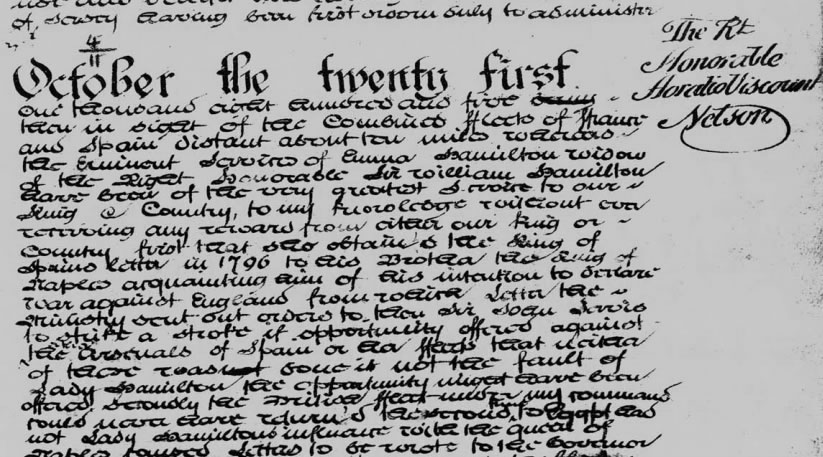 of Secrecy having been first sworn duly to administer
4
11
The Rt
Honorable
Horatio Viscount
Nelson
October the twenty first
One thousand eight hundred and five
then in sight of the Combined Fleets of France
and Spain distant about ten miles Whereas
the Eminent Services of Emma Hamilton widow
of the Right Honorable Sir William Hamilton
have been of the very greatest Service to our
King & Country, to my knowledge without ever
receiving any reward from either our King or
Country first that she obtain'd the King of
Spains letter in 1796 to his Brother the King of
Naples acquainting him of his intention to Declare
war against England from which Letter the
Ministry sent out orders to then Sir John Jervis
to strike a stroke if opportunity offered against
the Arsenals of Spain or her fleets that neither
of these was done is not the fault of
Lady Hamilton the opportunity might have been
offered secondly the British fleet under my command
could never have return'd the second time to Egypt had
not Lady Hamiltons influence with the Queen of
Naples caused Letters to be wrote to the Governor